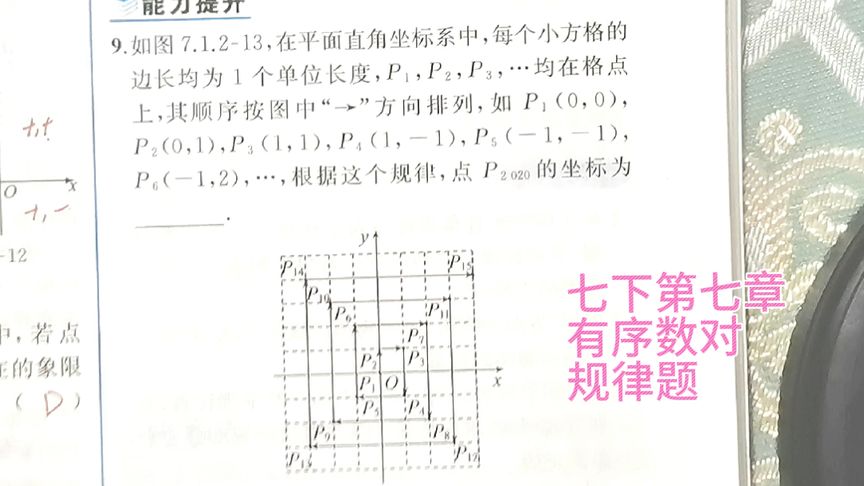 能力提升
9.如图 7.1.2-13,在平面直角坐标系中,每个小方格的
边长均为 1 个单位长度,P₁,P₂,P₃,…均在格点
上,其顺序按图中“→”方向排列,如 P₁(0,0),
P₂(0,1),P₃(1,1),P₄(1,-1),P₅(-1,-1),
P₆(-1,2),…,根据这个规律,点 P₂₀₂₀ 的坐标为
________.
O
x
-12
中,若点
在的象限
( D )
y
P₁₄
P₁₅
P₁₀
P₁₁
P₆
P₇
P₂
P₃
x
P₁
O
P₅
P₄
P₉
P₈
P₁₂
七下第七章
有序数对
规律题